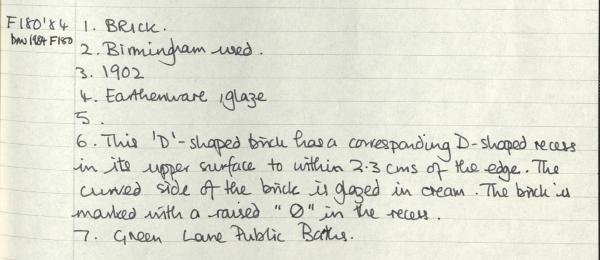 F180'84 1. BRICK.
BMU 1984 F180 2. Birmingham used.
3. 1902
4. Earthenware, glaze
5.
6. This 'D'-shaped brick has a corresponding D-shaped recess
in its upper surface to within 2.3 cms of the edge. The
curved side of the brick is glazed in cream. The brick is
marked with a raised "0" in the recess.
7. Green Lane Public Baths.